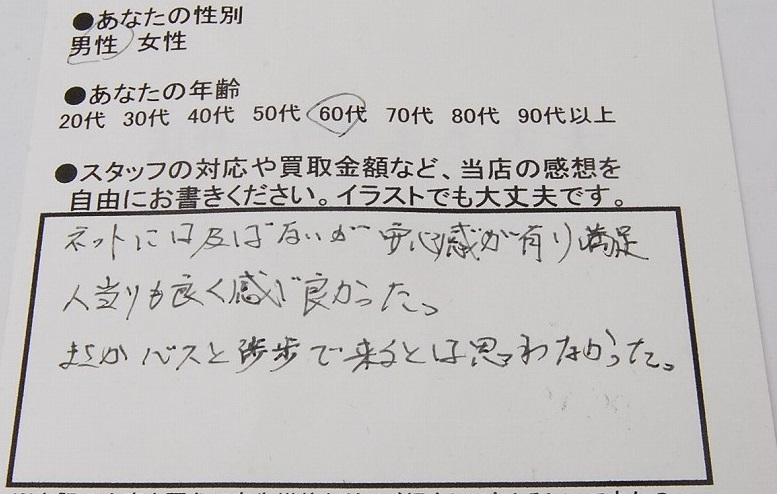 ●あなたの性別
男性 女性
●あなたの年齢
20代 30代 40代 50代 60代 70代 80代 90代以上
●スタッフの対応や買取金額など、当店の感想を
自由にお書きください。イラストでも大丈夫です。
ネットには及ばないが安心感が有り満足
人当りも良く感じ良かった。
まさかバスと徒歩で来るとは思わなかった。